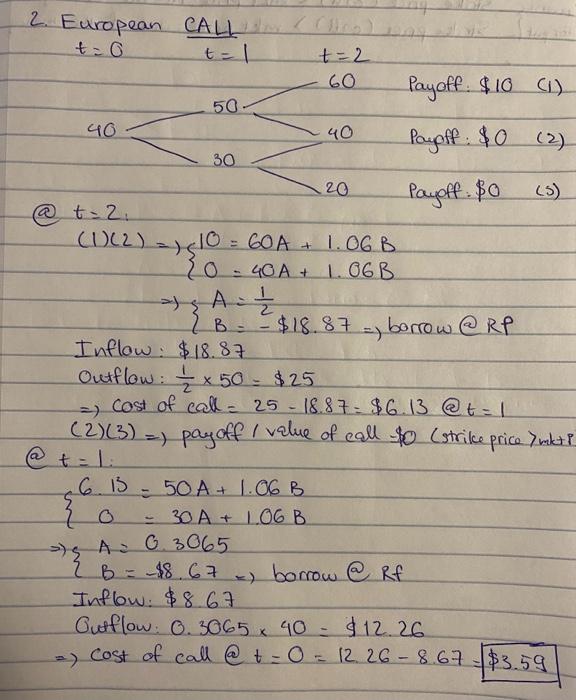 2. European CALL
t=0 t=1 t=2
60 Payoff: $10 (1)
50
40 40 Payoff: $0 (2)
30
20 Payoff: $0 (3)
@ t=2:
(1)(2) => { 10 = 60A + 1.06B
{ 0 = 40A + 1.06B
=> { A = 1/2
{ B = -$18.87 => borrow @ Rf
Inflow: $18.87
Outflow: 1/2 x 50 = $25
=> Cost of call = 25 - 18.87 = $6.13 @ t=1
(2)(3) => payoff / value of call = $0 (strike price > mkt P
@ t=1:
{ 6.13 = 50A + 1.06B
{ 0 = 30A + 1.06B
=> { A = 0.3065
{ B = -$8.67 => borrow @ Rf
Inflow: $8.67
Outflow: 0.3065 x 40 = $12.26
=> Cost of call @ t=0 = 12.26 - 8.67 = $3.59